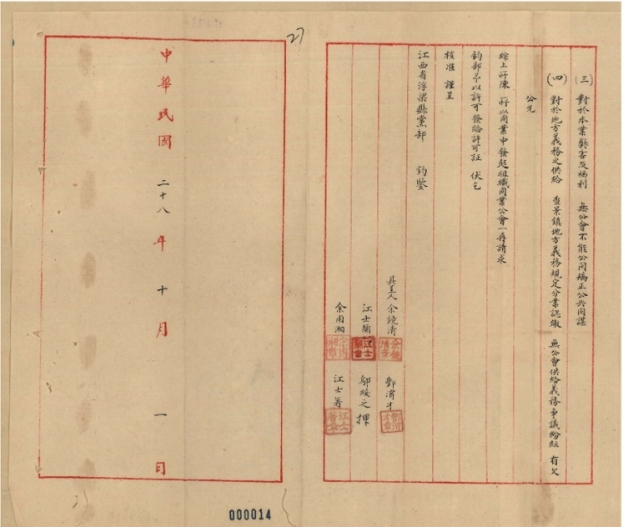 (三) 對於本業弊害及福利 無公會不能公同矯正公共同謀
(四) 對於地方義務之供給 查景鎮地方義務規定分業認繳 無公會供給義務爭議紛紜 有欠
公允
綜上所陳 所以同業中發起組織同業公會一再請求
鈞部予以許可發給許可証 伏乞
核准 謹呈
江西省浮梁縣黨部 鈞鑒
具呈人 余鏡清 鄧清才
江士蘭 鄔綏之 押
余用湘 江士香
27
中華民國二十八年十月一日
000014